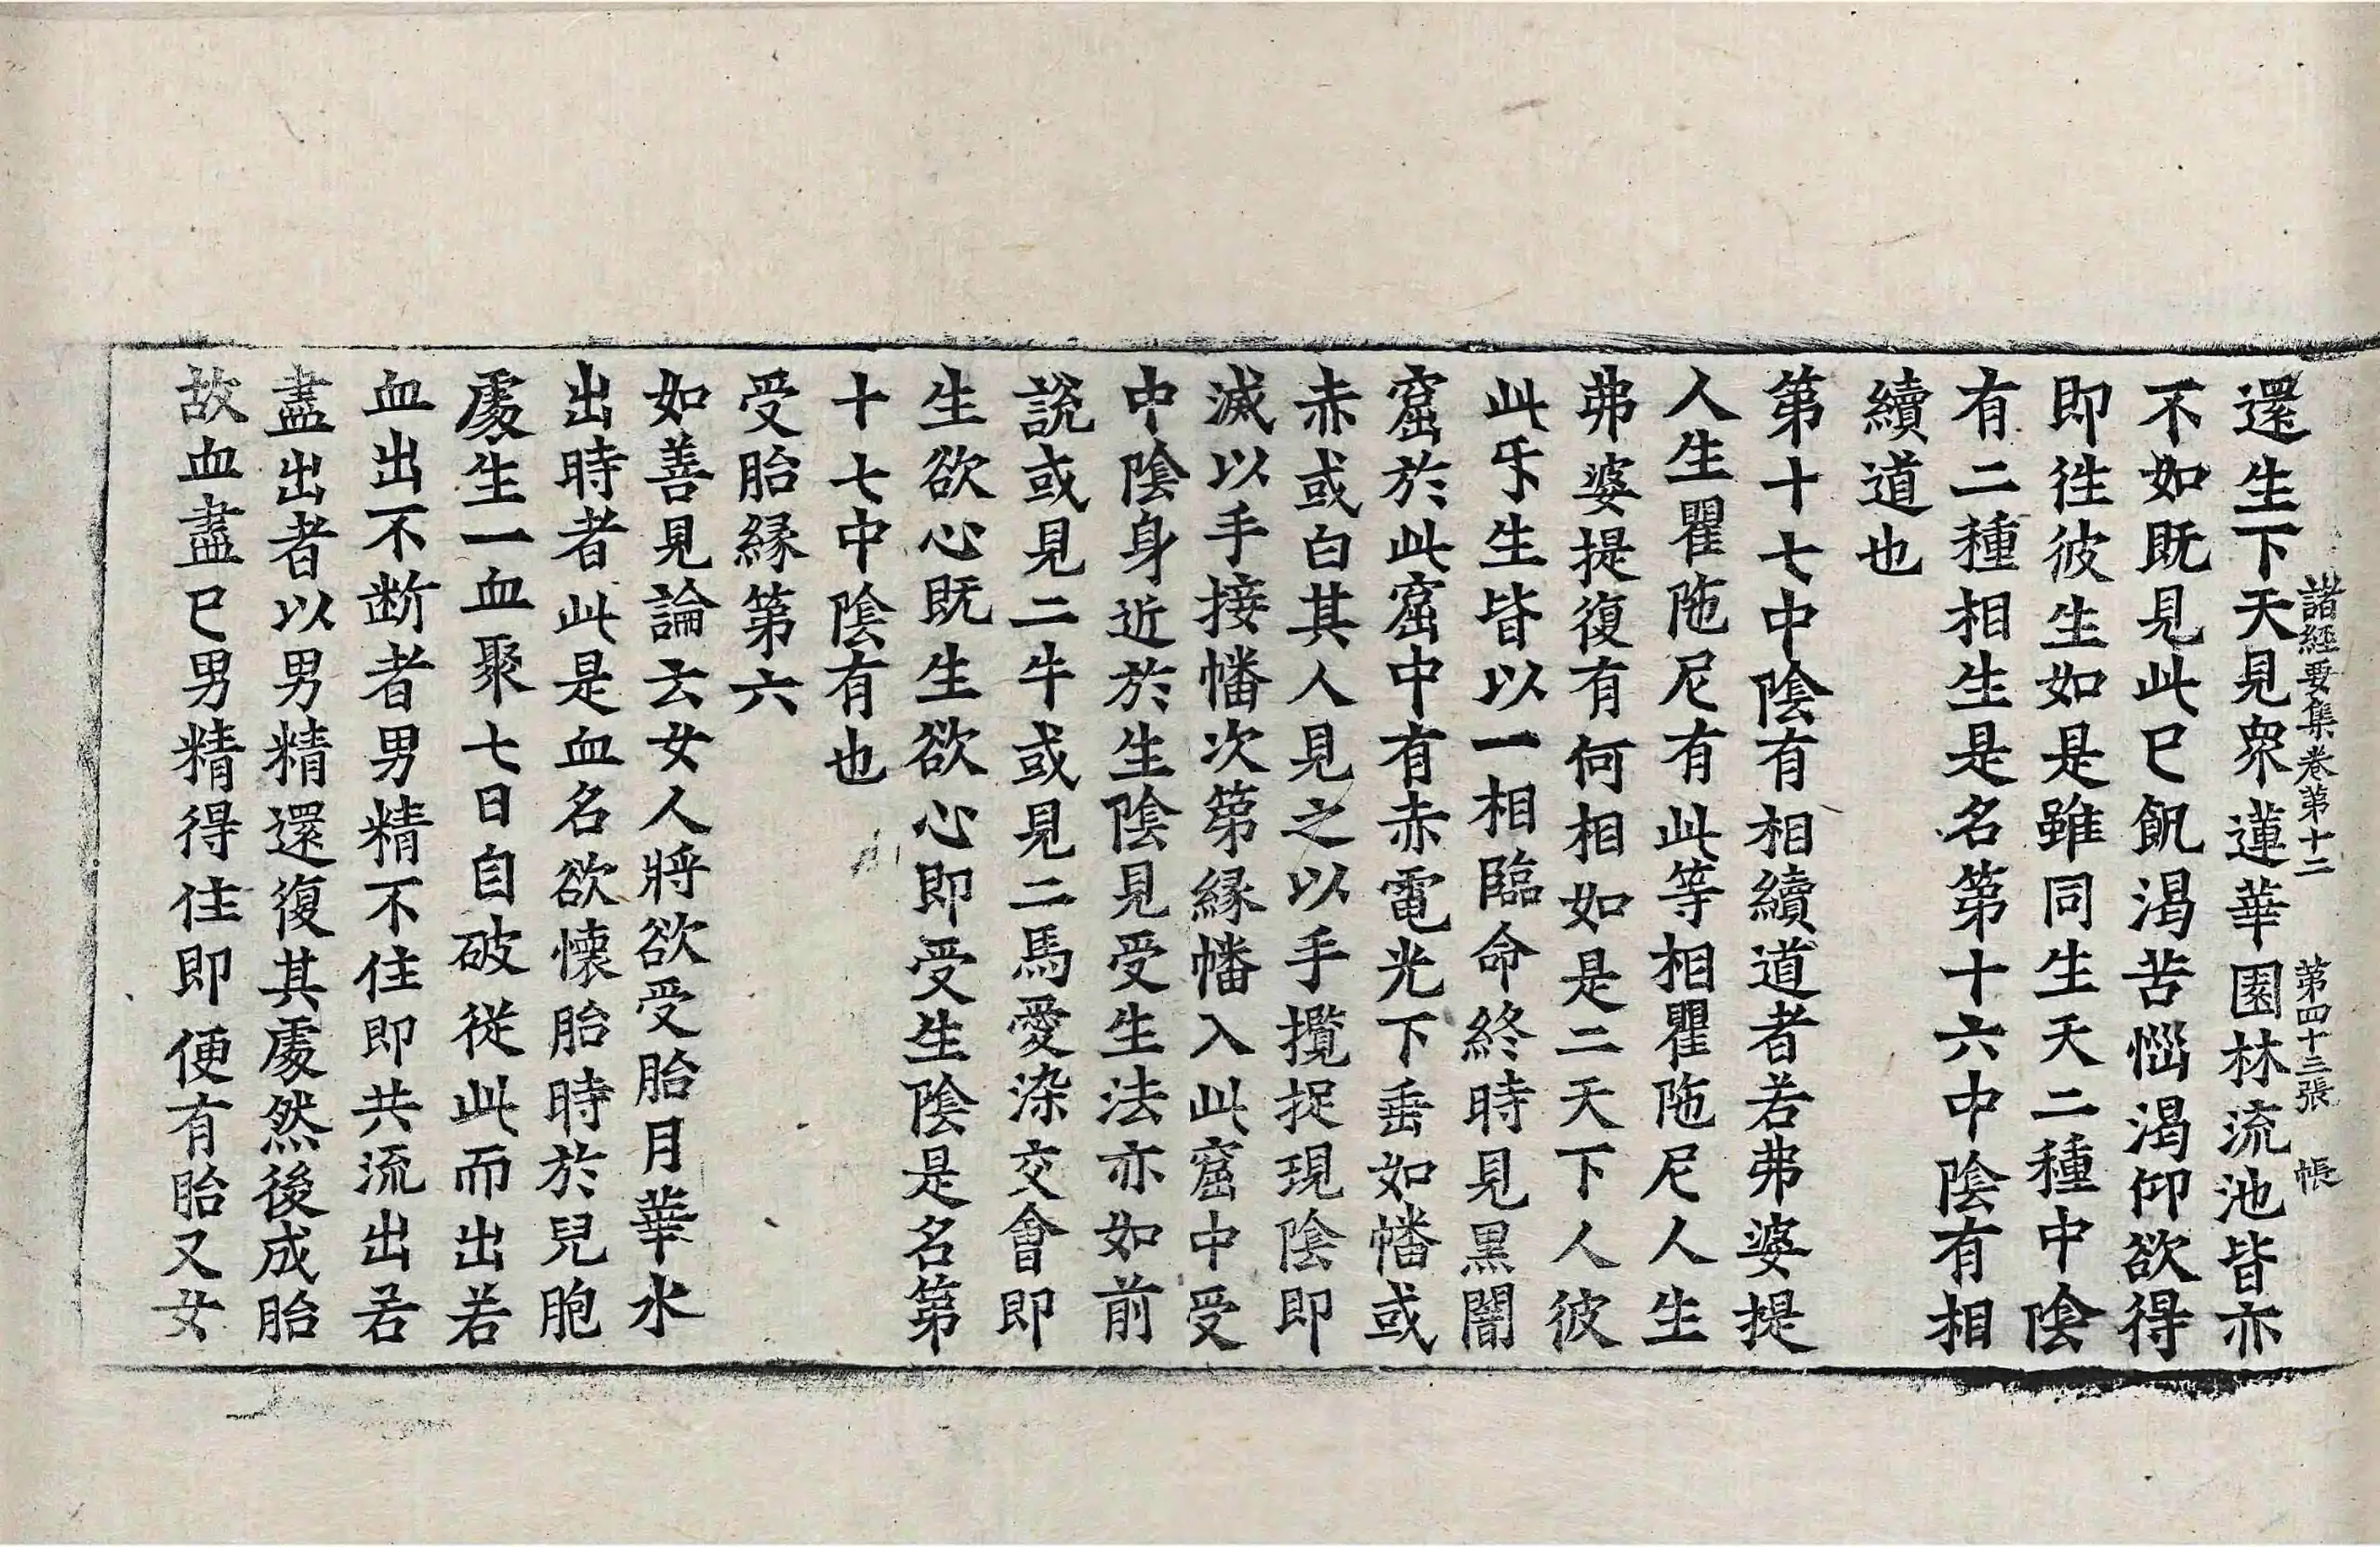 諸經要集卷第十二 第四十三張 帳
還生下天見衆蓮華園林流池皆亦
不如既見此已飢渴苦惱渴仰欲得
即往彼生如是雖同生天二種中陰
有二種相生是名第十六中陰有相
續道也
第十七中陰有相續道者若弗婆提
人生瞿陁尼有此等相瞿陁尼人生
弗婆提復有何相如是二天下人彼
此㸦生皆以一相臨命終時見黑闇
窟於此窟中有赤電光下垂如幡或
赤或白其人見之以手攬捉現陰即
滅以手接幡次第緣幡入此窟中受
中陰身近於生陰見受生法亦如前
說或見二牛或見二馬愛染交會即
生欲心既生欲心即受生陰是名第
十七中陰有也
受胎緣第六
如善見論云女人將欲受胎月華水
出時者此是血名欲懷胎時於兒胞
處生一血聚七日自破從此而出若
血出不斷者男精不住即共流出若
盡出者以男精還復其處然後成胎
故血盡已男精得住即便有胎又女